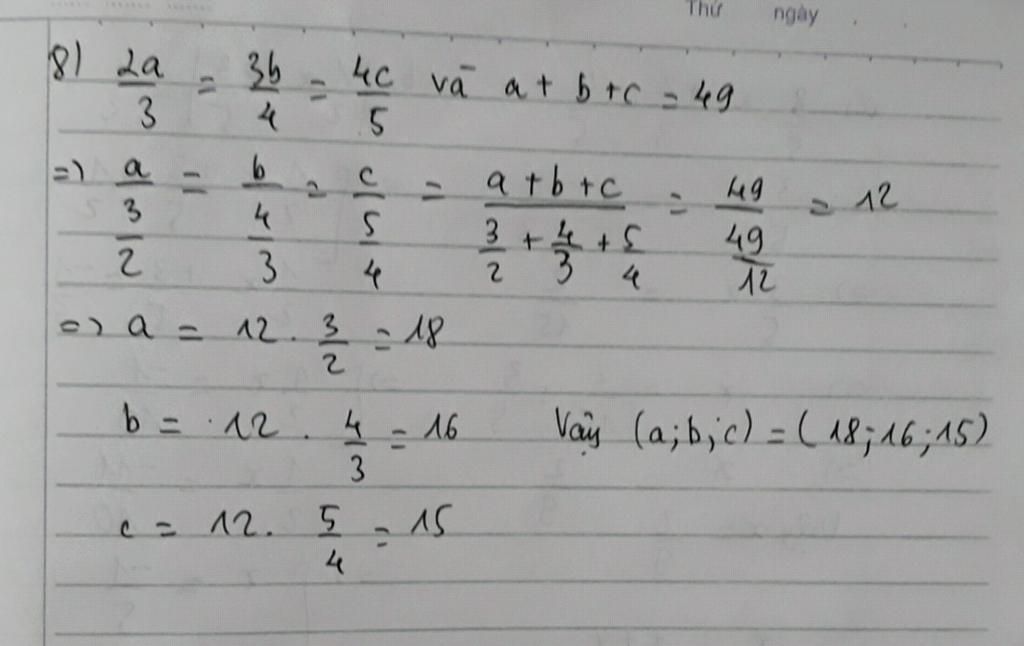 Thứ ngày
8) 2a/3 = 3b/4 = 4c/5 và a + b + c = 49
=> a/(3/2) = b/(4/3) = c/(5/4) = (a + b + c)/(3/2 + 4/3 + 5/4) = 49/(49/12) = 12
=> a = 12 . 3/2 = 18
b = 12 . 4/3 = 16 Vậy (a;b;c) = (18;16;15)
c = 12 . 5/4 = 15